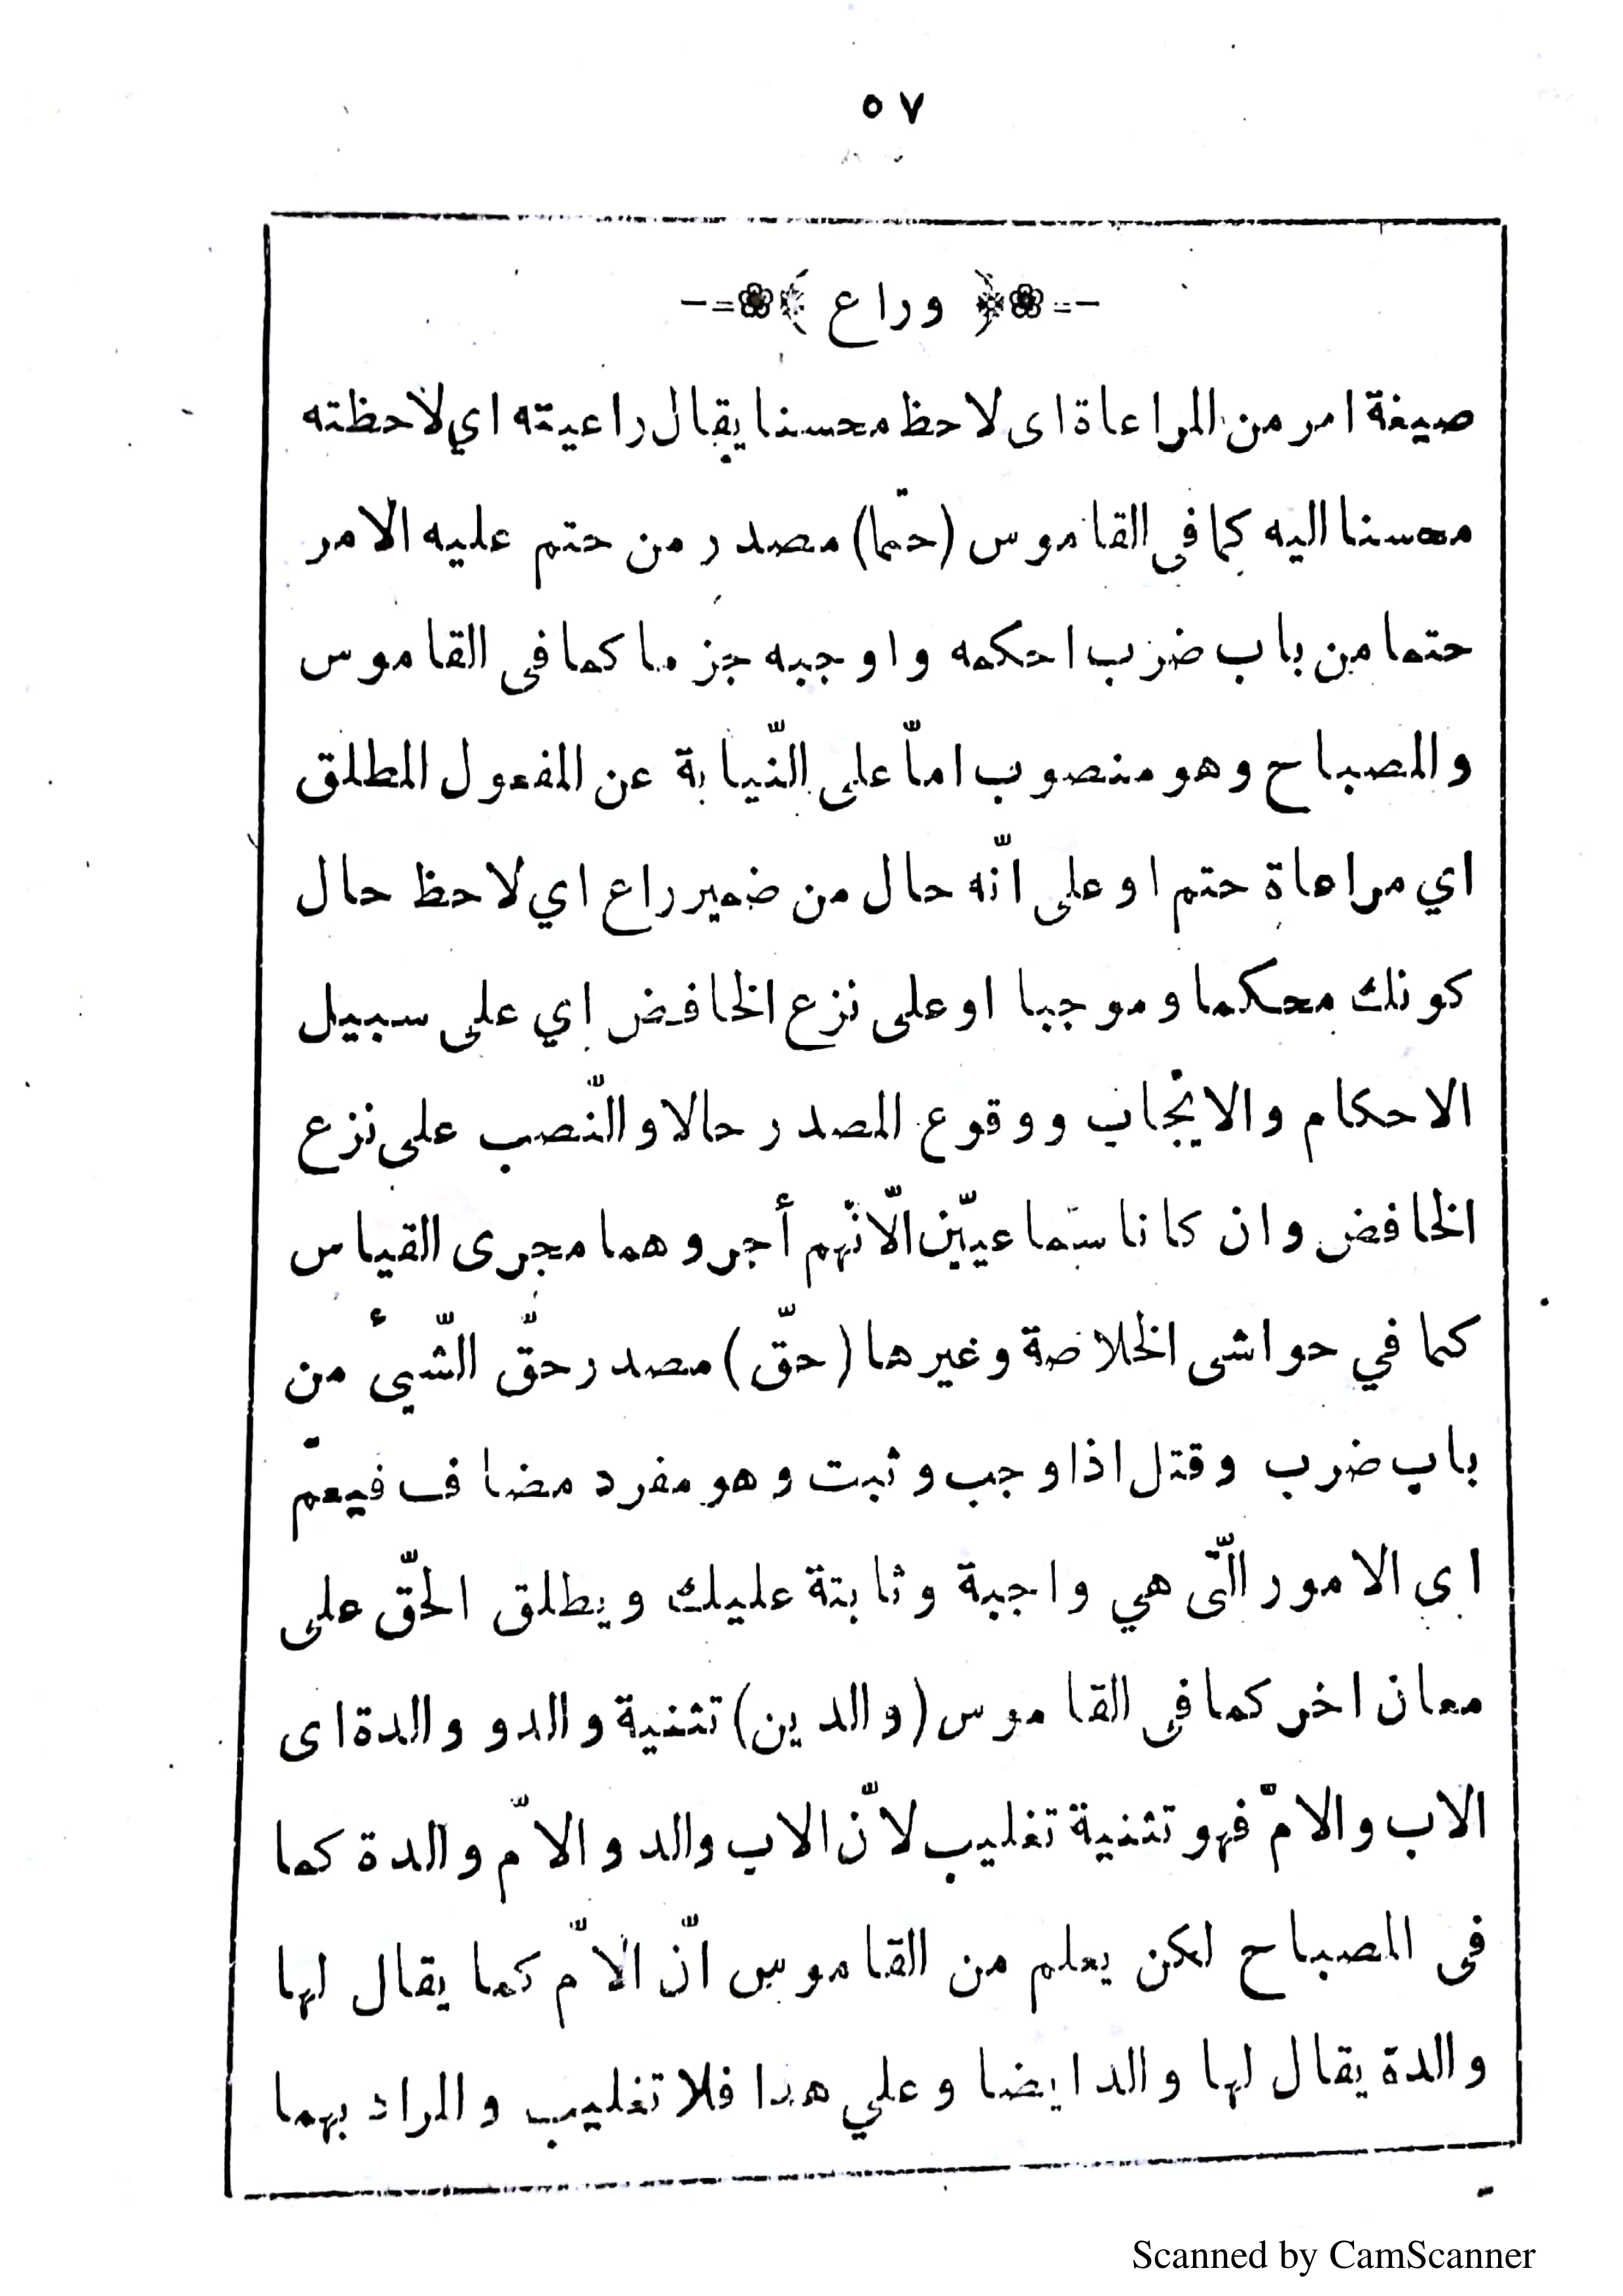 ٥٧
﴿ وراع ﴾
صيغة امر من المراعاة اى لاحظ محسنا يقال راعيته اي لاحظته
محسنا اليه كما فى القاموس (حتما) مصدر من حتم عليه الامر
حتما من باب ضرب احكمه واوجبه جزما كما فى القاموس
والمصباح وهو منصوب امّا على النّيابة عن المفعول المطلق
اي مراعاة حتم او على انّه حال من ضمير راع اي لاحظ حال
كونك محكما وموجبا او على نزع الخافض اي على سبيل
الاحكام والايجاب ووقوع المصدر حالا والنّصب على نزع
الخافض وان كانا سماعيّين الّا انّهم أجروهما مجرى القياس
كما في حواشى الخلاصة وغيرها (حقّ) مصدر حقّ الشّيئ من
باب ضرب وقتل اذا وجب وثبت وهو مفرد مضاف فيعمّ
اى الامور الّتى هي واجبة وثابتة عليك ويطلق الحقّ على
معان اخر كما فى القاموس (والدين) تثنية والد و والدة اى
الاب والامّ فهو تثنية تغليب لانّ الاب والد و الامّ والدة كما
فى المصباح لكن يعلم من القاموس انّ الامّ كما يقال لها
والدة يقال لها والد ايضا وعلي هذا فلا تغليب والمراد بهما
Scanned by CamScanner